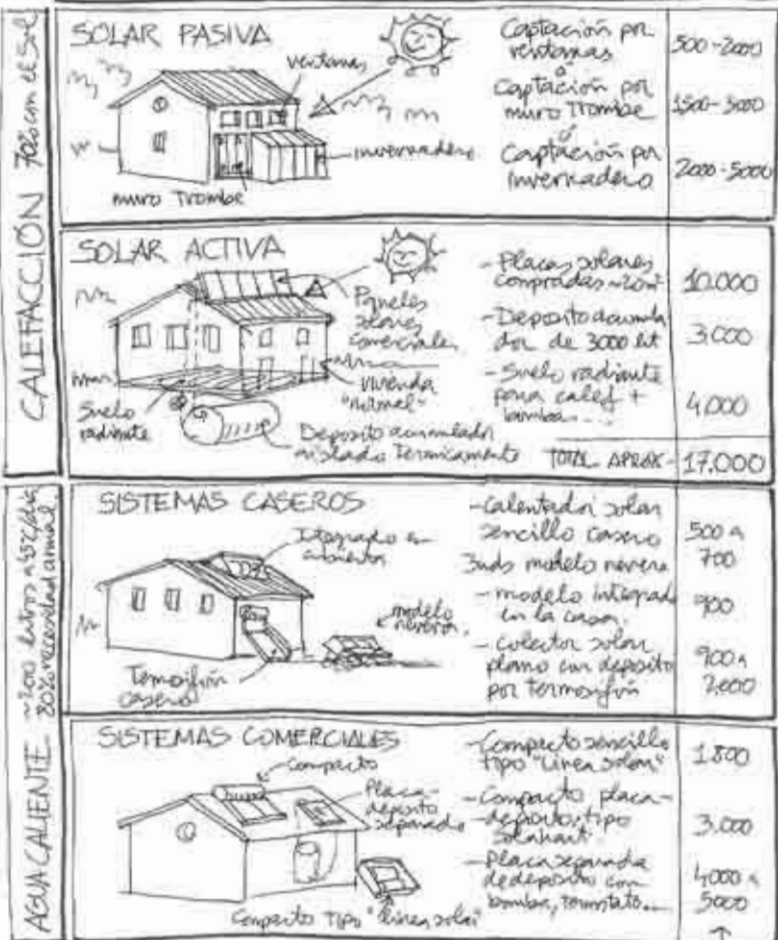 CALEFACCIÓN 70% con el Sol
SOLAR PASIVA
ventanas
invernadero
muro Trombe
Captación por
ventanas
500-2000
ó
Captación por
muro Trombe
1500-3000
ó
Captación por
invernadero
2000-5000
SOLAR ACTIVA
Paneles
solares
comerciales
vivienda
"normal"
Suelo
radiante
Deposito acumulador
aislado Termicamente
- Placas solares
compradas ~20m²
10.000
- Deposito acumula
dor de 3000 lit
3.000
- Suelo radiante
para calef +
bombas...
4.000
TOTAL APROX - 17.000
AGUA CALIENTE ~200 litros a 45ºC/día
80% necesidad anual
SISTEMAS CASEROS
Integrado en
modelo
nevera
Termosifón
casero
- Calentador solar
sencillo casero
500 a
700
3uds modelo nevera
- modelo integrado
en la casa.
900
- colector solar
plano con deposito
por termosifón
900 a
2.000
SISTEMAS COMERCIALES
Compacto
Placa-
deposito
separado
Compacto Tipo "linea solar"
- Compacto sencillo
tipo "linea solar"
1.800
- Compacto placa-
deposito, tipo
Solahart
3.000
- Placa separada
de deposito con
bomba, termstato....
4000 a
5000